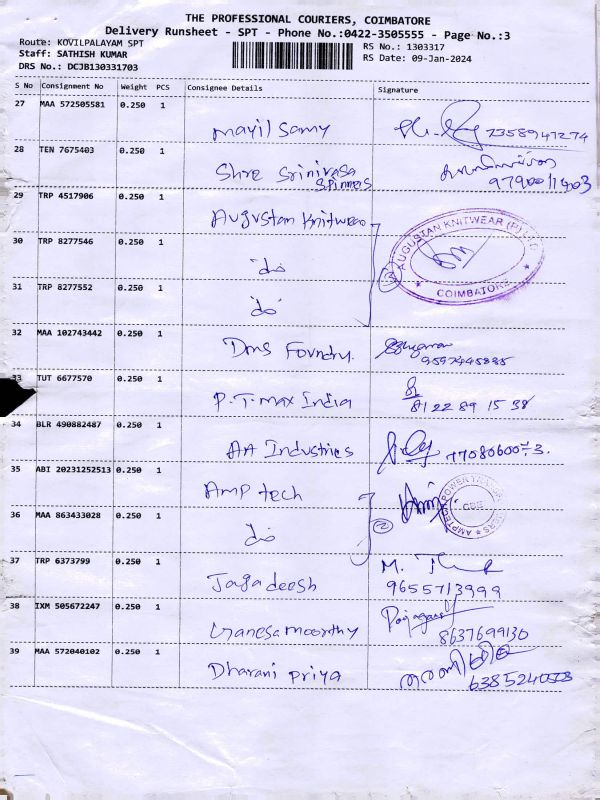 THE PROFESSIONAL COURIERS, COIMBATORE
Delivery Runsheet - SPT - Phone No.:0422-3505555 - Page No.:3
Route: KOVILPALAYAM SPT
RS No.: 1303317
Staff: SATHISH KUMAR
RS Date: 09-Jan-2024
DRS No.: DCJB130331703
S No Consignment No Weight PCS Consignee Details Signature
27 MAA 572505581 0.250 1
Mayil Samy 7358947274
28 TEN 7675403 0.250 1
Shree Srinivasa
Spinners
9790011403
29 TRP 4517906 0.250 1
Augustan Knitwear
AUGUSTAN KNITWEAR (P) LTD
COIMBATORE
30 TRP 8277546 0.250 1
do
3
31 TRP 8277552 0.250 1
do
32 MAA 102743442 0.250 1
Dms Foundry.
9597445835
33 TUT 6677570 0.250 1
P.T.max India 81 22 89 15 38
34 BLR 490882487 0.250 1
AA Industries
35 ABI 20231252513 0.250 1
AMP tech
36 MAA 863433028 0.250 1
do
2
37 TRP 6373799 0.250 1
Jagadeesh
9655713999
38 IXM 505672247 0.250 1
Ganesamoorthy
8637699130
39 MAA 572040102 0.250 1
Dharani Priya